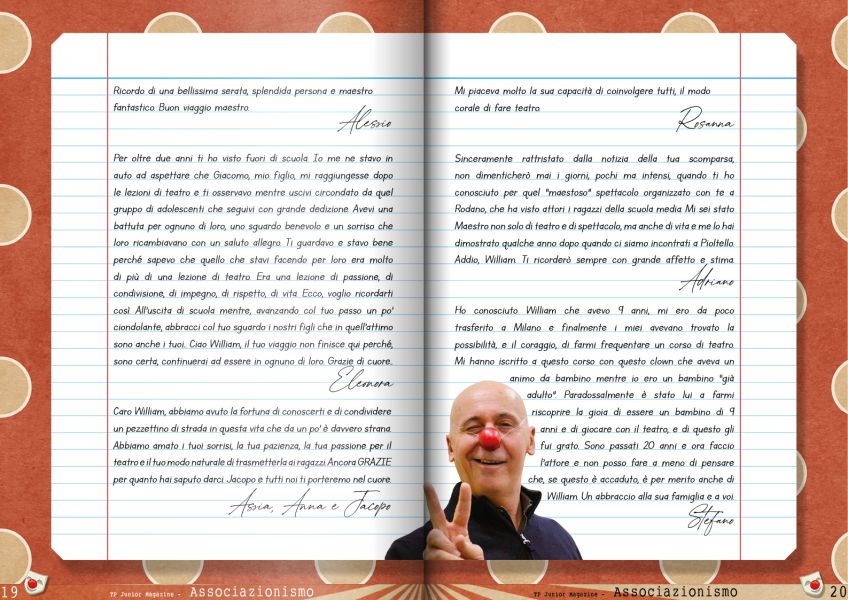 Ricordo di una bellissima serata, splendida persona e maestro
fantastico. Buon viaggio maestro.
Alessio
Per oltre due anni ti ho visto fuori di scuola. Io me ne stavo in
auto ad aspettare che Giacomo, mio figlio, mi raggiungesse dopo
le lezioni di teatro e ti osservavo mentre uscivi circondato da quel
gruppo di adolescenti che seguivi con grande dedizione. Avevi una
battuta per ognuno di loro, uno sguardo benevolo e un sorriso che
loro ricambiavano con un saluto allegro. Ti guardavo e stavo bene
perché sapevo che quello che stavi facendo per loro era molto
di più di una lezione di teatro. Era una lezione di passione, di
condivisione, di impegno, di rispetto, di vita. Ecco, voglio ricordarti
così. All'uscita di scuola mentre, avanzando col tuo passo un po'
ciondolante, abbracci col tuo sguardo i nostri figli che in quell'attimo
sono anche i tuoi. Ciao William, il tuo viaggio non finisce qui perché,
sono certa, continuerai ad essere in ognuno di loro. Grazie di cuore.
Eleonora
Caro William, abbiamo avuto la fortuna di conoscerti e di condividere
un pezzettino di strada in questa vita che da un po' è davvero strana.
Abbiamo amato i tuoi sorrisi, la tua pazienza, la tua passione per il
teatro e il tuo modo naturale di trasmetterla ai ragazzi. Ancora GRAZIE
per quanto hai saputo darci. Jacopo e tutti noi ti porteremo nel cuore.
Assia, Anna e Jacopo
19
TP Junior Magazine - Associazionismo
Mi piaceva molto la sua capacità di coinvolgere tutti, il modo
corale di fare teatro.
Rosanna
Sinceramente rattristato dalla notizia della tua scomparsa,
non dimenticherò mai i giorni, pochi ma intensi, quando ti ho
conosciuto per quel "maestoso" spettacolo organizzato con te a
Rodano, che ha visto attori i ragazzi della scuola media. Mi sei stato
Maestro non solo di teatro e di spettacolo, ma anche di vita e me lo hai
dimostrato qualche anno dopo quando ci siamo incontrati a Pioltello.
Addio, William. Ti ricorderò sempre con grande affetto e stima.
Adriano
Ho conosciuto William che avevo 9 anni, mi ero da poco
trasferito a Milano e finalmente i miei avevano trovato la
possibilità, e il coraggio, di farmi frequentare un corso di teatro.
Mi hanno iscritto a questo corso con questo clown che aveva un
animo da bambino mentre io ero un bambino "già
adulto". Paradossalmente è stato lui a farmi
riscoprire la gioia di essere un bambino di 9
anni e di giocare con il teatro, e di questo gli
fui grato. Sono passati 20 anni e ora faccio
l'attore e non posso fare a meno di pensare
che, se questo è accaduto, è per merito anche di
William. Un abbraccio alla sua famiglia e a voi.
Stefano
TP Junior Magazine - Associazionismo
20